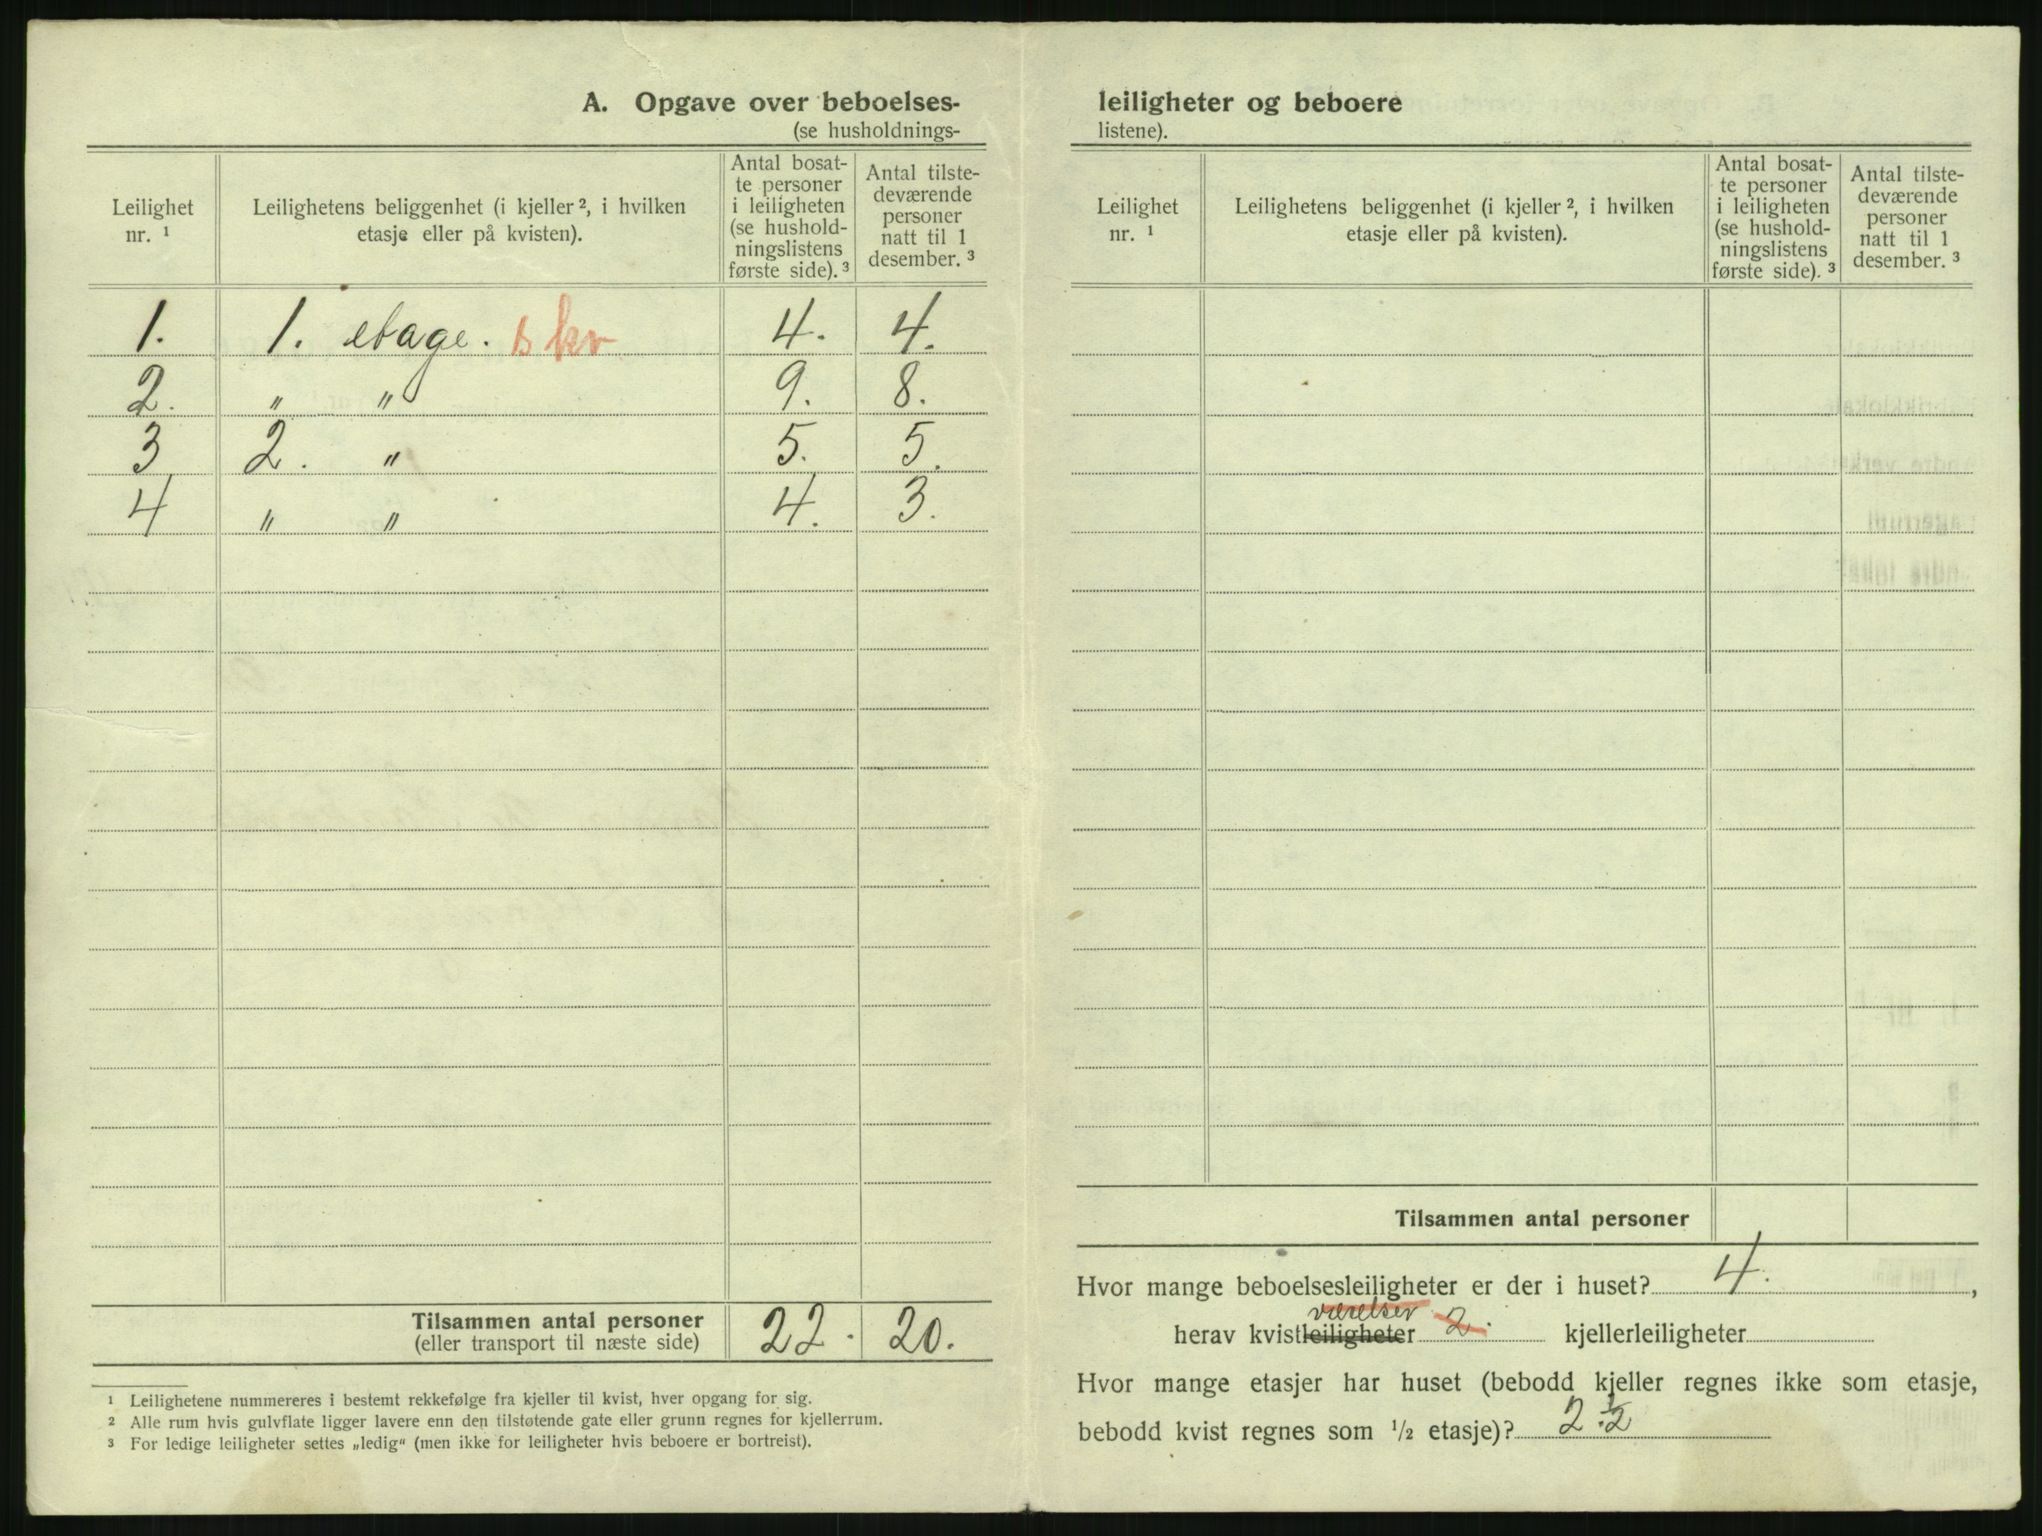 A. Opgave over beboelses-
(se husholdnings-
Leilighet nr. ¹
Leilighetens beliggenhet (i kjeller ², i hvilken etasje eller på kvisten).
Antal bosat-
te personer
i leiligheten
(se hushold-
ningslistens
første side). ³
Antal tilste-
deværende
personer
natt til 1
desember. ³
1. 1. etage. 4. 4.
2. " " 9. 8.
3 2. " 5. 5.
4 " " 4. 3.
Tilsammen antal personer 22. 20.
(eller transport til næste side)
¹ Leilighetene nummereres i bestemt rekkefølge fra kjeller til kvist, hver opgang for sig.
² Alle rum hvis gulvflate ligger lavere enn den tilstøtende gate eller grunn regnes for kjellerrum.
³ For ledige leiligheter settes „ledig" (men ikke for leiligheter hvis beboere er bortreist).
leiligheter og beboere
listene).
Leilighet nr. ¹
Leilighetens beliggenhet (i kjeller ², i hvilken etasje eller på kvisten).
Antal bosat-
te personer
i leiligheten
(se hushold-
ningslistens
første side). ³
Antal tilste-
deværende
personer
natt til 1
desember. ³
Tilsammen antal personer
Hvor mange beboelsesleiligheter er der i huset? 4.,
værelser
herav kvistleiligheter 2. kjellerleiligheter
Hvor mange etasjer har huset (bebodd kjeller regnes ikke som etasje,
bebodd kvist regnes som ½ etasje)? 2 ½